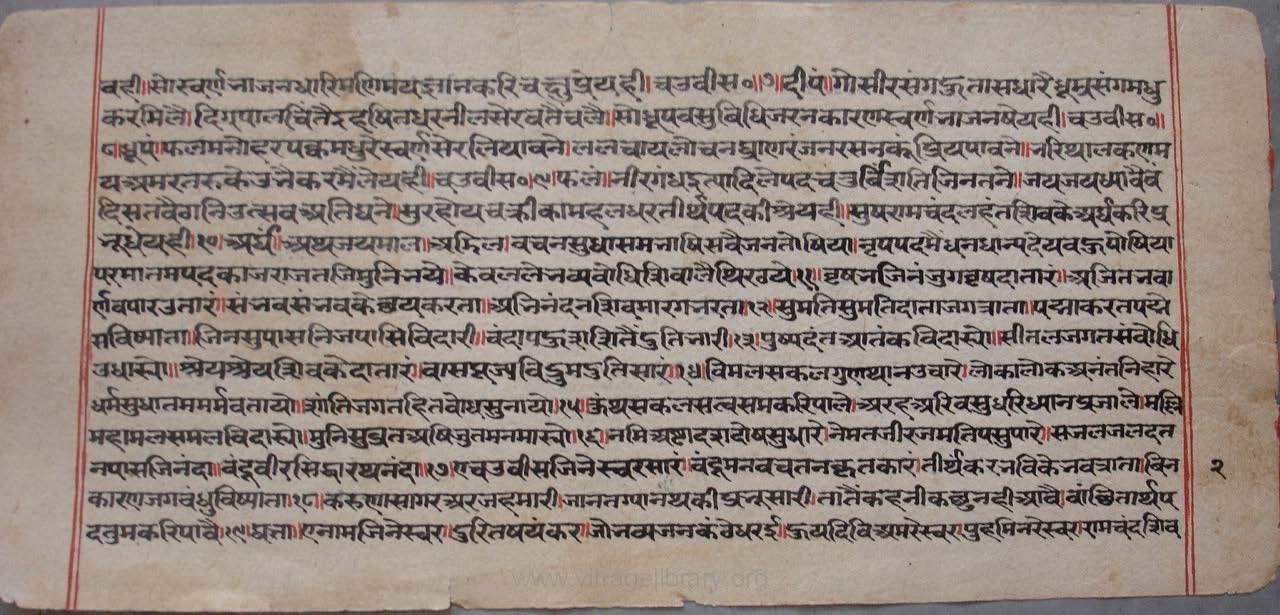 वही॥सो स्वर्ण भाजन धारि मणिमय ज्ञान करि चहु प्रेय ही। चउवीस०॥७॥दीपं॥गोसीर संग हुतास धारै धूम्र संग मधु
कर मिलै। दिगपाल चिंतै द्रह षित धर नील सेरवतै चलै॥सो धूप वसुविधि जरन कारण स्वर्ण भाजन षेय ही। चउवीस०॥
८॥धूपं॥फल मनोहर पक्व मधुर स्वर्ण से रलियावने॥ललचाय लोचन घ्राण रंजन रसन कू प्रिय पावने॥भरि थाल कण म
य अमर तरु के उनै कर मै लेय ही॥चउवीस०॥९॥फलं॥नीर गध इत्यादि ले पद चउर्विंशति जिन तने॥जय जय ध्यावैवं
दि सतवै गनि उत्सव अति घने॥सुर होय चक्री काम हलधर तीर्थ पद की श्रेय ही॥सुषराम चंद लहंत शिव के अर्घ करि प्र
भु धेय ही॥१०॥अर्घं॥अथ जयमाल॥अडिल॥वचन सुधासम भाषि सवै जन तोषिया॥नृप पद मै धन धान्य देय वहु पोषिया
परमानम पद काज राज तजि मुनि भये॥केवल ले भव्य वोधि शिवालै थिर ठये॥११॥वृषभ जिनं जुग वृष दातारं॥अजित भवा
र्णव पार उतारं॥संभव संभव वकें षय करता॥अभिनंदन शिव मारग भरता॥१२॥सुमति सुमति दाता जग त्राता॥पद्माकरत पद्मे
स विष्याता॥जिन सुपास निज पासि विदारी॥वंदा पहु शशितैं दुति भारी॥१३॥पुष्पदंत आतंक विदास्यो॥सीतल जगत संवोधि
उधास्यो॥श्रेय श्रेय शिव के दातारं॥वासपूज्य विद्रुम दुति सारं॥१४॥विमल सकल गुण थान उचारे॥लोकालोक अनंत निहारे
धर्म सुधातम मर्म वतायो॥शांति जगत हित वोध सुनायो॥१५॥कुंथ सकल सत्व सम करि पाले॥अरह अरि वसु धरि ध्यान प्रजाले॥मल्लि
महामल समल विदास्यो॥मुनिसुव्रत अषि जुत मन मास्यो॥१६॥नमि अष्टादश दोष सुधारे॥नेमत जीरजमति पसु पारे॥सजल जलद तन
नपास जिनंदा॥वंदू वीर सिद्धारथ नंदा॥१७॥ए चउवीस जिनेस्वर सारं॥वंदू मन वच तन कृत कारं॥तीर्थकर भवि के भव त्राता॥विन
कारण जग वंधु विष्याता॥१८॥करुणासागर अरज हमारी॥जानत ग्पान थकी प्रभु सारी॥तातैं कहनी कछु नही आवै॥वांछितार्थ प
द तुम करि पावै॥१९॥घत्ता॥ए नाम जिनेस्वर॥दुरित षयंकर॥जो भव्य जन कंठे धरई॥हुय दिवि अमरेस्वर॥पुहमि नरेस्वर॥रामचंद शिव
२
www.vitragelibrary.org